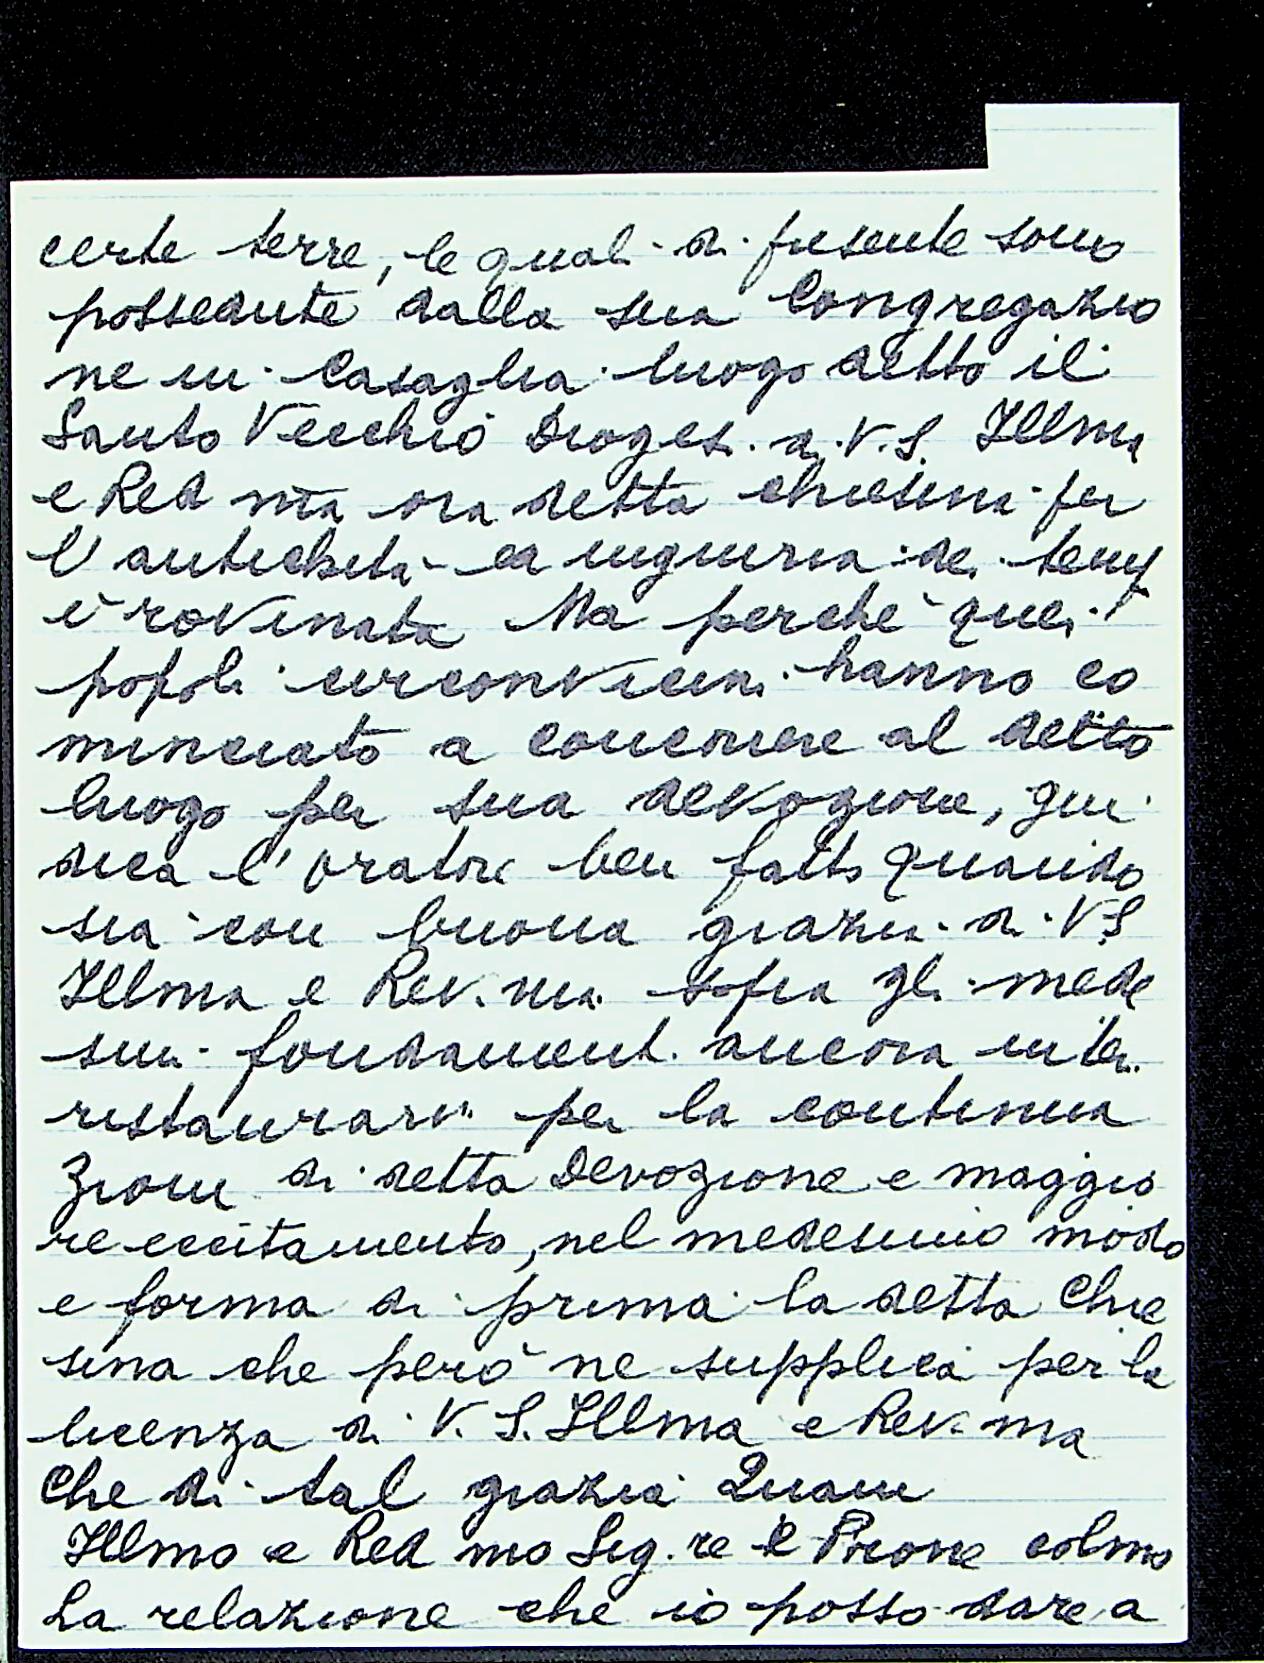 certe terre, le quali di presente sono
possedute dalla sua Congregazio
ne in Casaglia luogo detto il
Santo Vecchio Dioges. a V.S. Illma
e Red ma ora detta chiesina per
l'antichità ed ingiuria dei tempj
è rovinata Ma perchè quei
popoli circonvicini hanno co
minciato a concorrere al detto
luogo per sua devozione, giu
dica l'oratore ben fatto quando
sia con buona grazia di V.S
Illma e Rev. ma sopra gli mede
simi fondamenti ancora interi
ristaurarvi per la continua
zione di detta Devozione e maggio
re eccitamento, nel medesimo modo
e forma di prima la detta Chie
sina che però ne supplica per la
licenza di V. S. Illma e Rev. ma
Che di tal grazia Quam
Illmo e Red mo Sig. re e Prone colmo
La relazione che io posso dare a